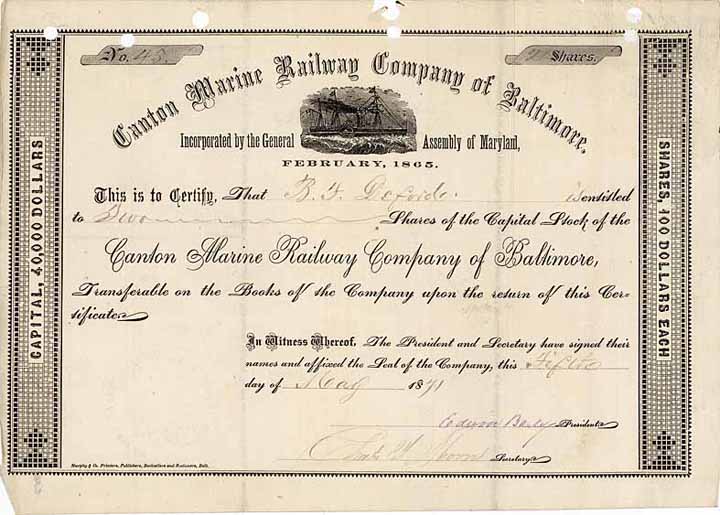 No. 43.
2 Shares.
Canton Marine Railway Company of Baltimore.
Incorporated by the General Assembly of Maryland,
FEBRUARY, 1865.
CAPITAL, 40,000 DOLLARS
SHARES, 100 DOLLARS EACH
This is to Certify, That B. F. is entitled
to Two Shares of the Capital Stock of the
Canton Marine Railway Company of Baltimore,
Transferable on the Books of the Company upon the return of this Cer-
tificate.
In Witness Whereof, The President and Secretary have signed their
names and affixed the Seal of the Company, this Fifth
day of May 1871
President.
Secretary.
Murphy & Co. Printers, Publishers, Booksellers and Stationers, Balt.